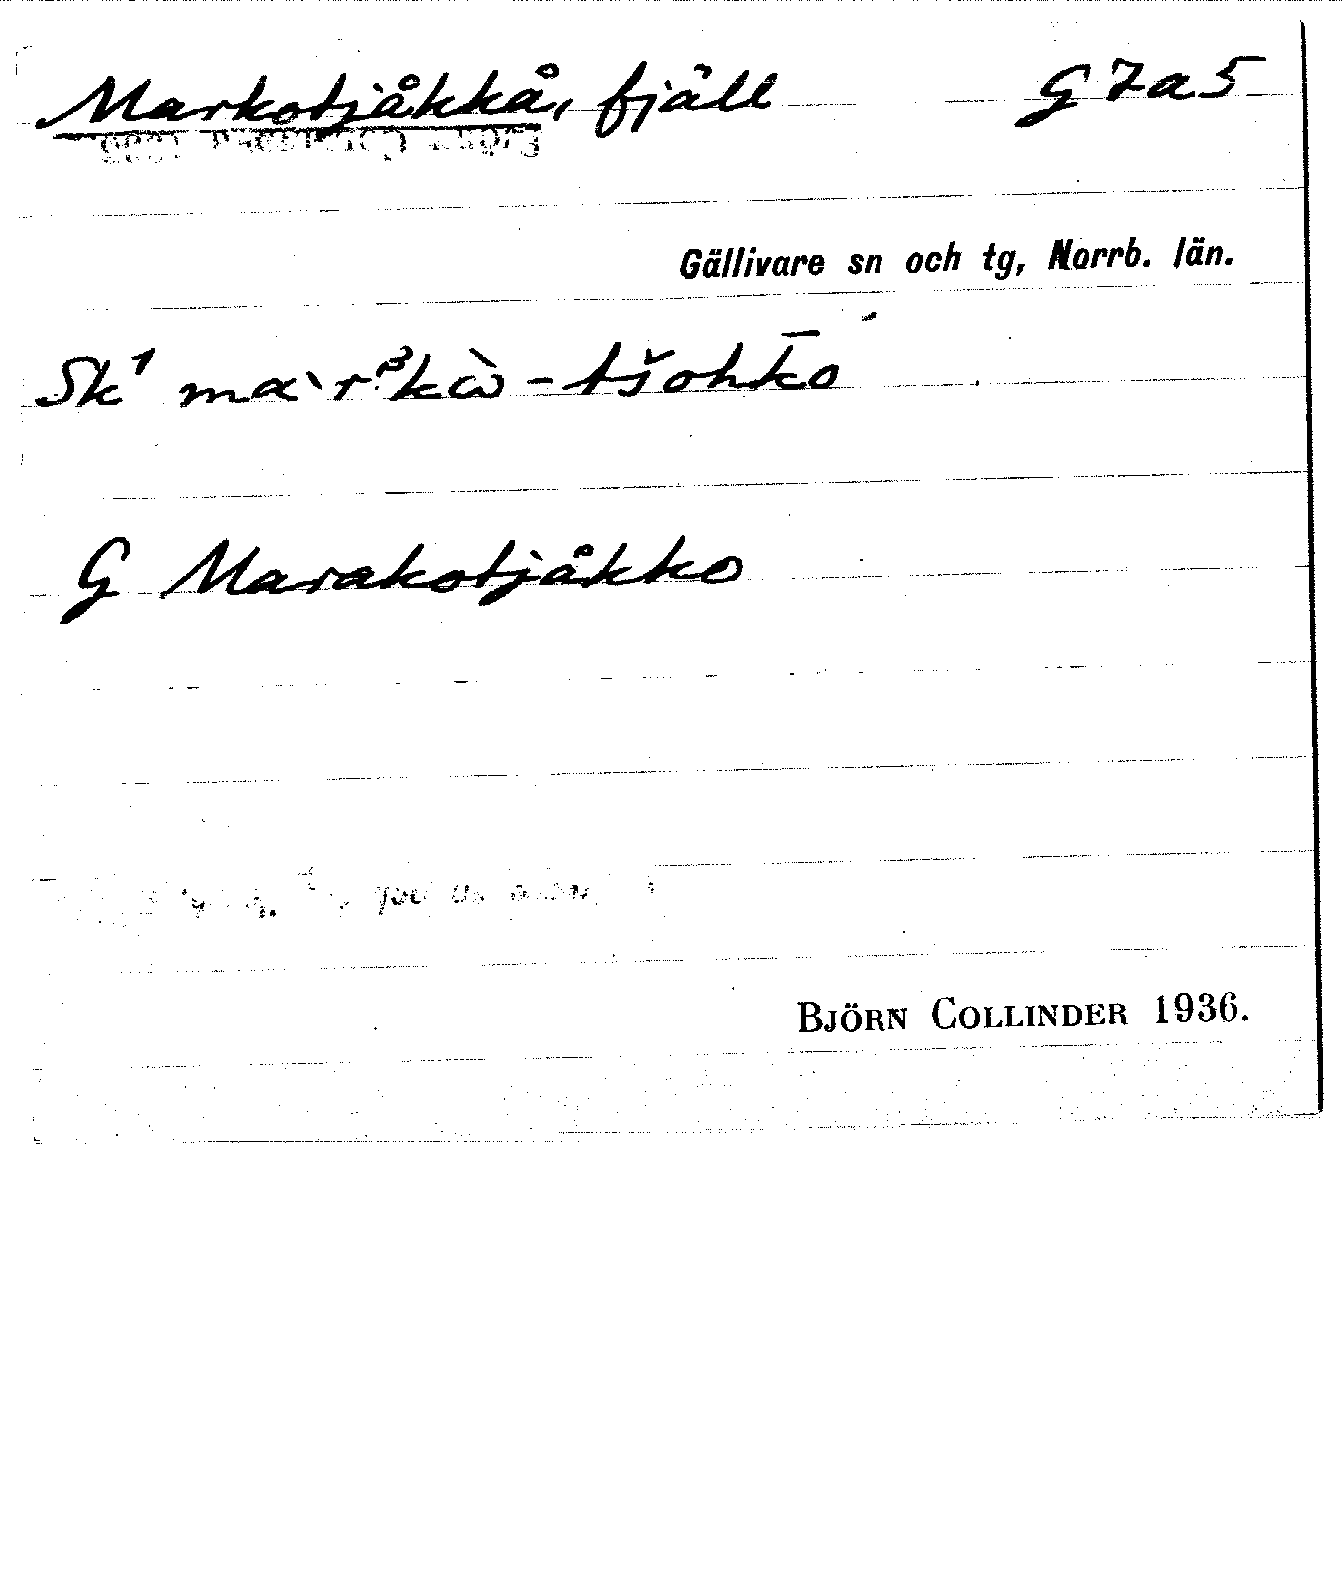 Markotjåkkå, fjäll G 7 a 5
Gällivare sn och tg, Norrb. län.
Sk¹ mɑ`rᵊkὼ - tšohk̄o
G Marakotjåkko
BJÖRN COLLINDER 1936.